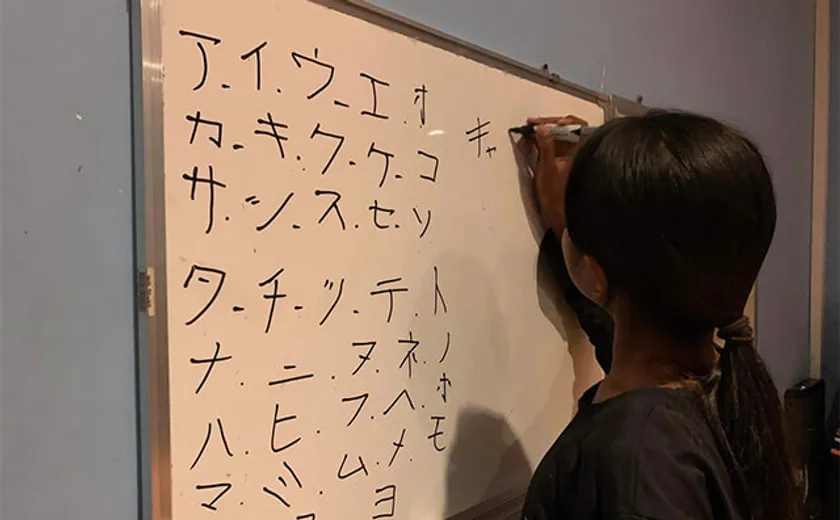 ア-イ.ウ-エ.オ
カ-キ.ク-ケ-コ
サ.シ.ス.セ.ソ
タ-チ-ツ.テ.ト
ナ.ニ.ヌ.ネ.ノ
ハ.ヒ.フ.ヘ.ホ
マ.ミ.ム.メ.モ
ヨ
キャ